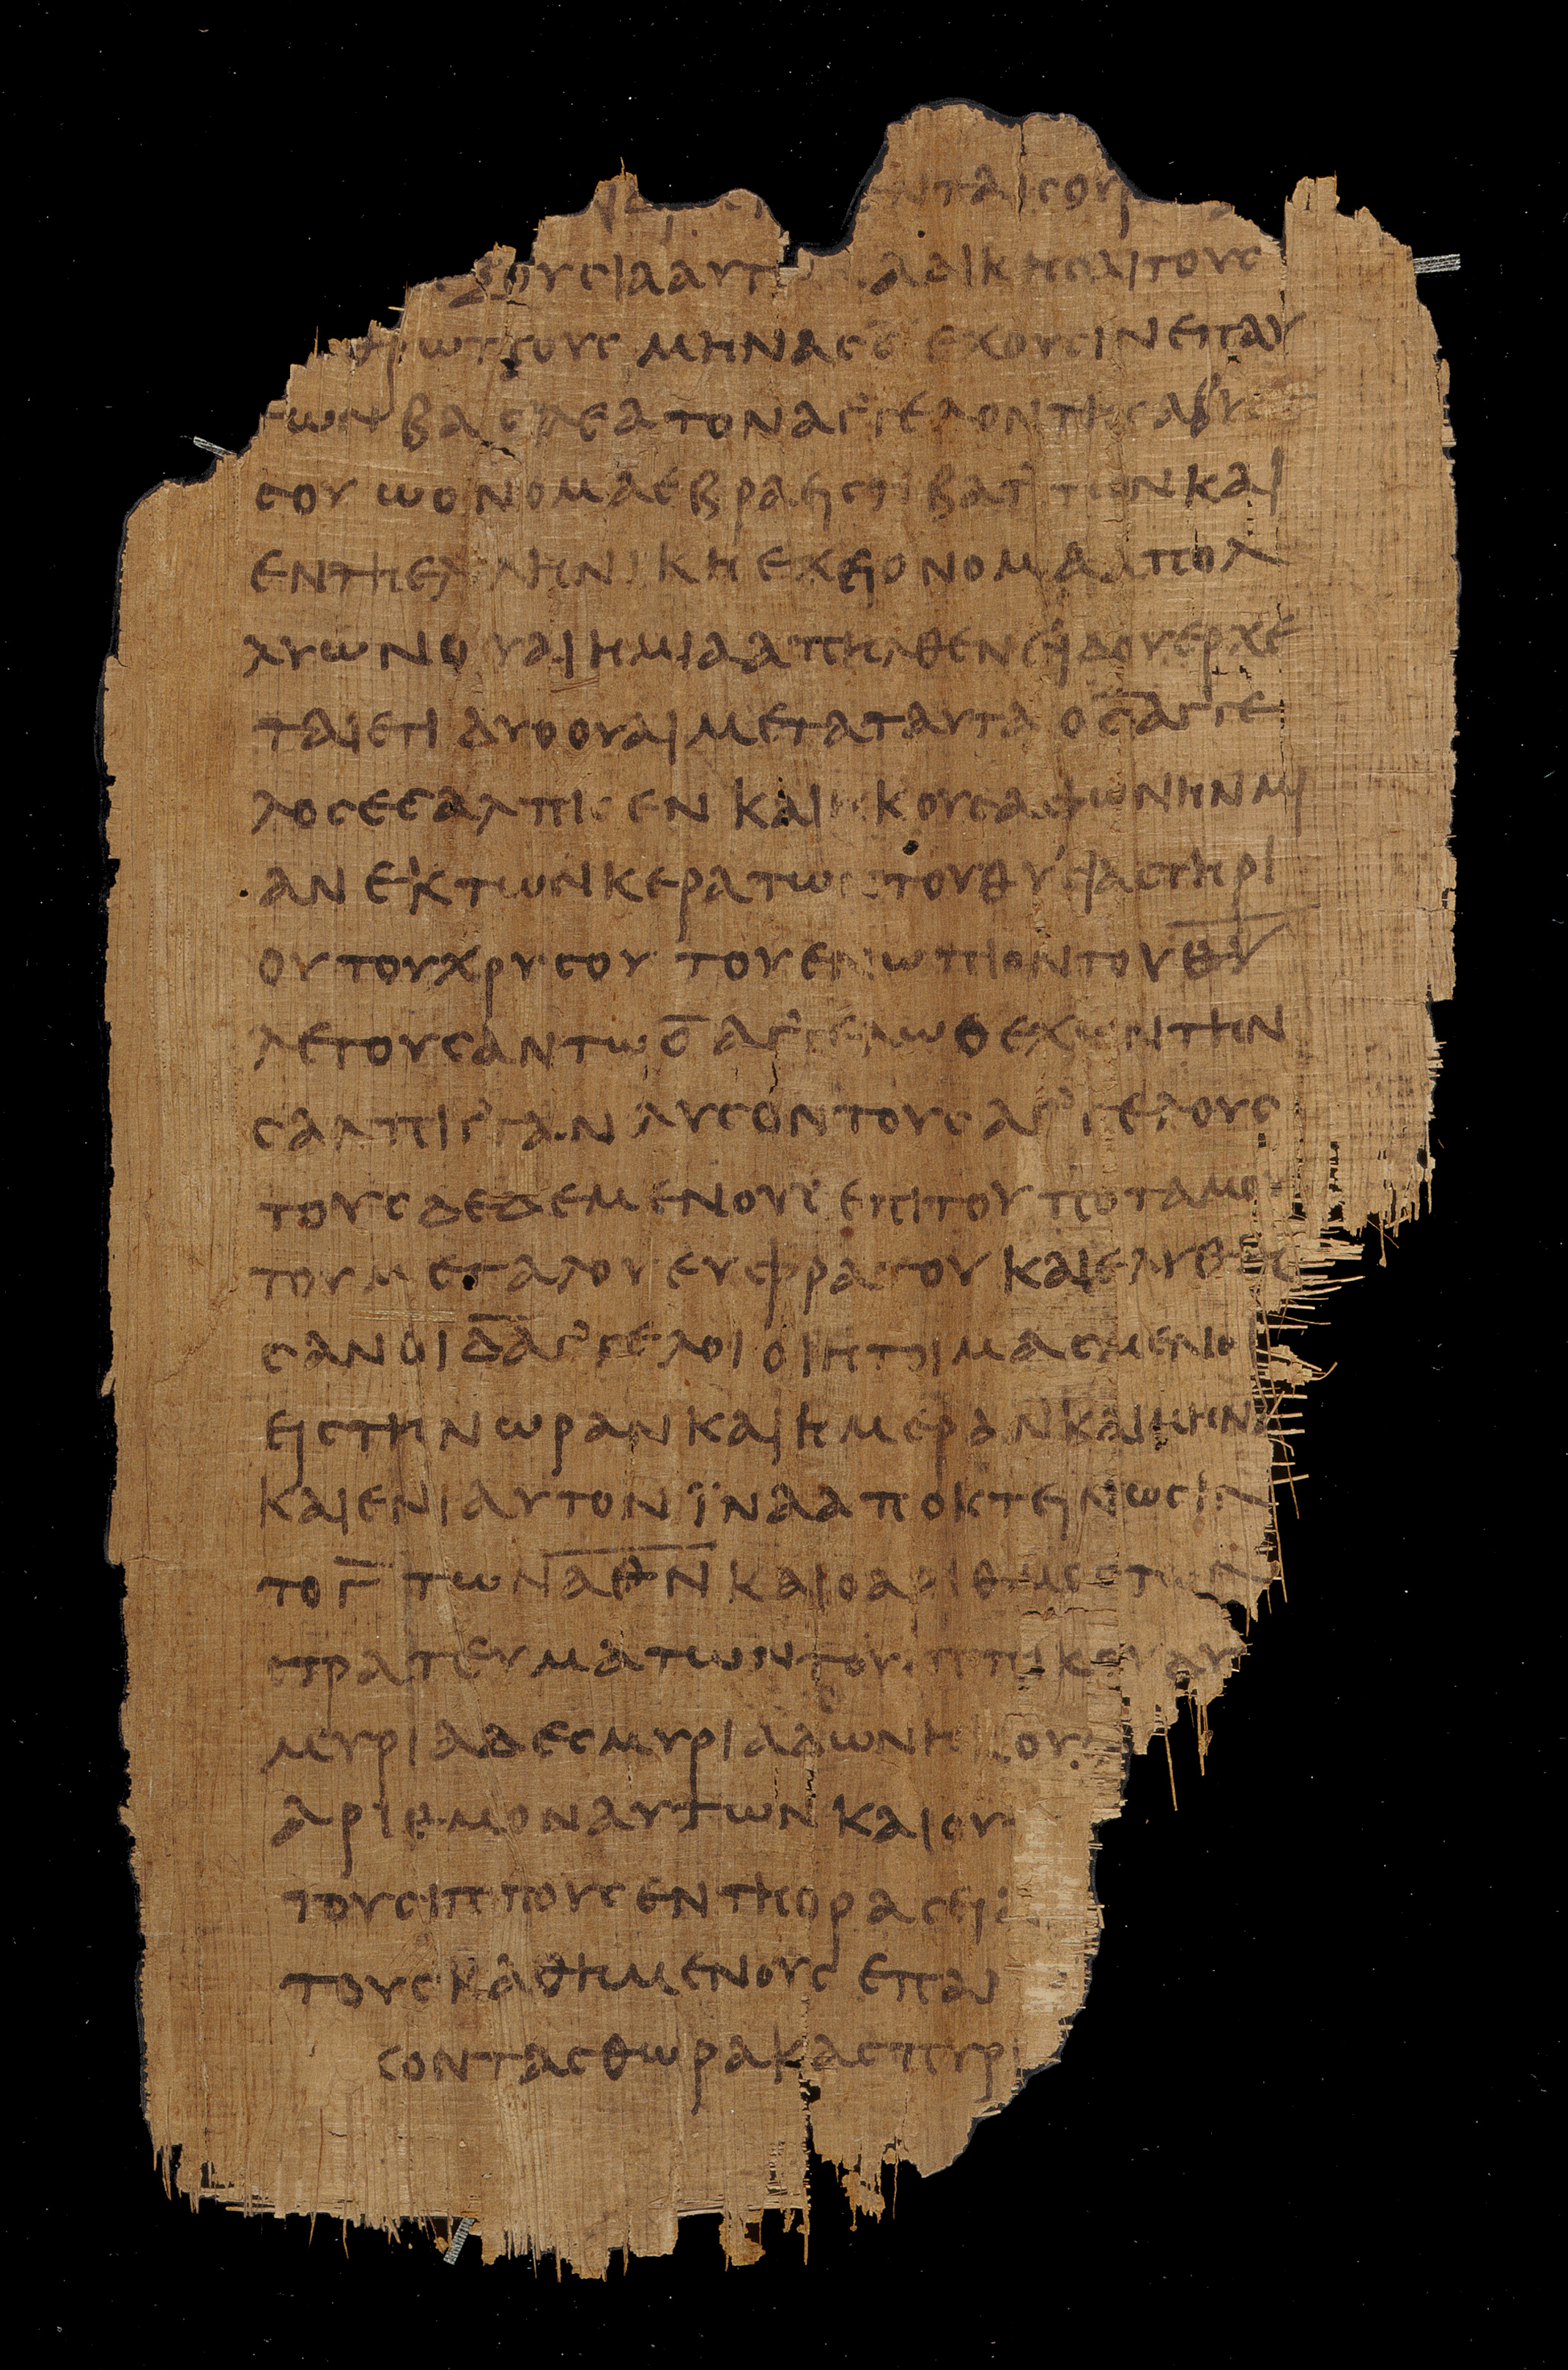 ενταισουρ
εξουσιααυτω αδικησαιτους
ωπουςμηναςε̅εχουσινεπαυ
τωνβασιλεατοναγ᾽γελοντηςαβυς
σουωονομαεβραειστιβατ᾽τωνκαι
εντηελληνικηεχειονομααπολ
λυωνουαιημιααπηλθενειδουερχε
ταιετιδυοουαιμεταταυταος̅αγ᾽γε
λοςεσαλπισενκαιηκουσαφωνηνμι
ανεκτωνκερατωντουθυσιαστηρι
ουτουχρυσουτουενωπιοντουθ̅υ̅
λεγουσαντωσ̅αγ᾽γελωοεχωντην
σαλπιγ᾽γανλυσοντουςαγ᾽γελους
τουςδεδεμενουςεπιτουποταμου
τουμεγαλουευφρατουκαιελυθη
σανοιδ̅αγ᾽γελοιοιητοιμασμενοι
ειςτηνωρανκαιημερανκαιμηνα
καιενιαυτονϊνααποκτεινωσιν
τογ̅τωνα̅θ̅ν̅καιοαριθμοςτων
στρατευματωντουιππικουδυ
μυριαδεςμυριαδωνηκου
αριθμοναυτωνκαιου
τουςιππουςεντηορασει
τουςκαθημενουςεπαυ
χονταςθωρακαςπυρι